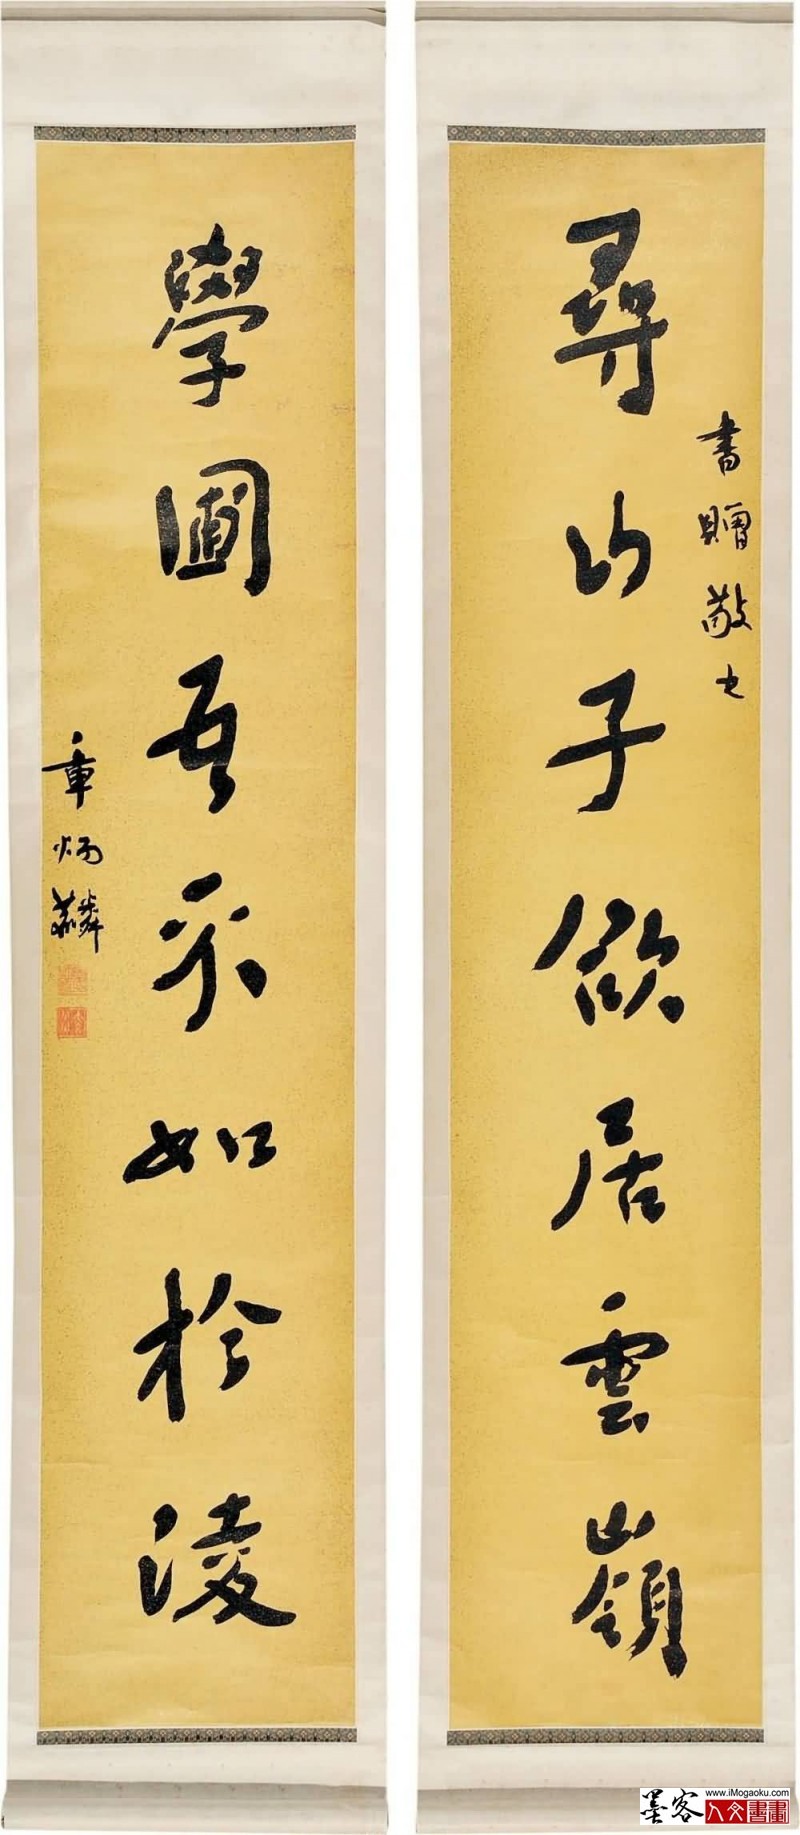 尋山子欲居雲嶺
書贈敬之
學圃吾不如於淩
章炳麟
墨客
www.iMogaoku.com
人文書畫